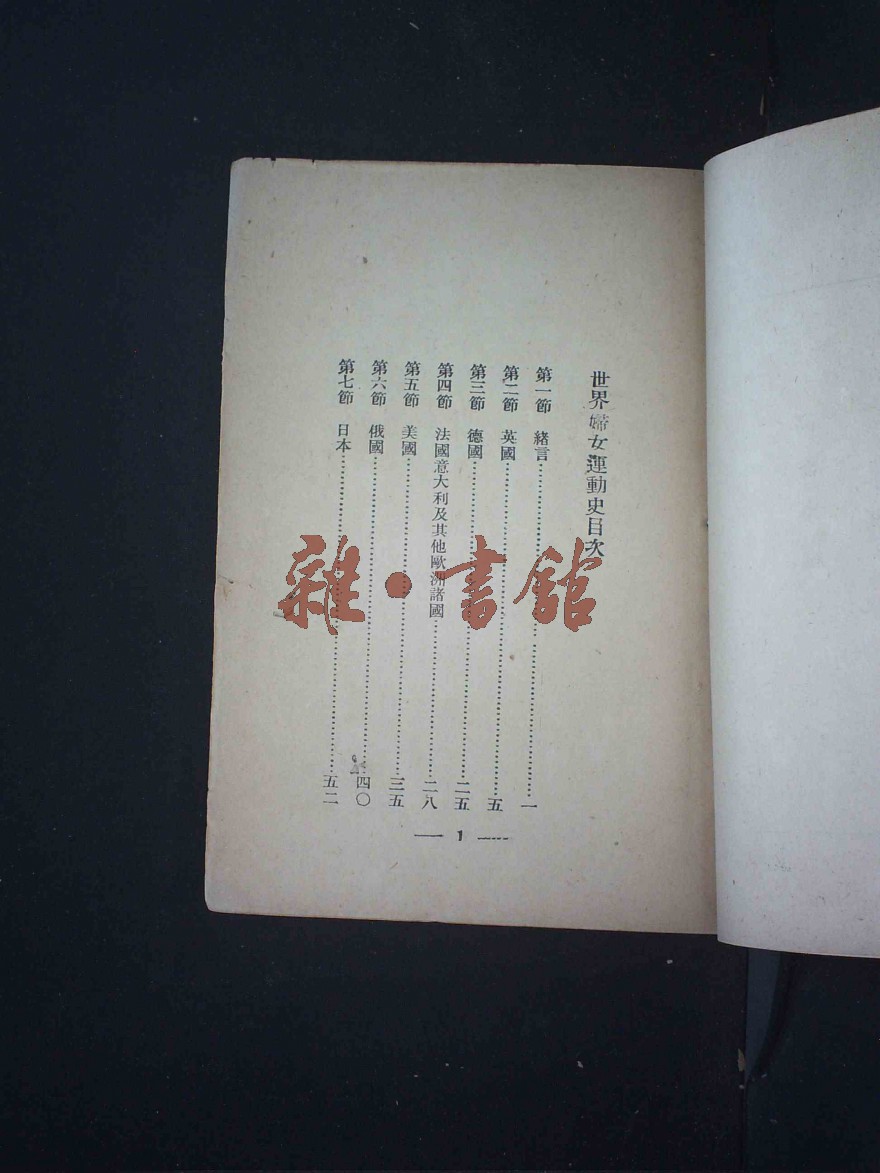 世界婦女運動史目次
第一節 緒言……一
第二節 英國……五
第三節 德國……二五
第四節 法國意大利及其他歐洲諸國……二八
第五節 美國……三五
第六節 俄國……四〇
第七節 日本……五二
— 1 —
雜·書館